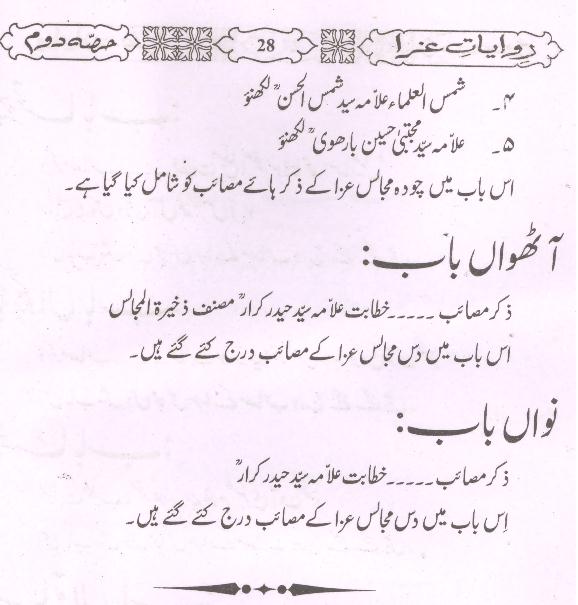 روایاتِ عزا 28 حصّہ دوم
۴۔ شمس العلماء علاّمہ سید شمس الحسنؒ لکھنؤ
۵۔ علاّمہ سیّد مجتبیٰ حسین بارھویؒ لکھنؤ
اس باب میں چودہ مجالس عزا کے ذکر ہائے مصائب کو شامل کیا گیا ہے۔
آٹھواں باب:
ذکر مصائب ۔۔۔۔۔ خطابت علاّمہ سیّد حیدر کرارؒ مصنف ذخیرۃ المجالس
اس باب میں دس مجالس عزا کے مصائب درج کئے گئے ہیں۔
نواں باب:
ذکر مصائب ۔۔۔۔۔ خطابت علاّمہ سیّد حیدر کرارؒ
اِس باب میں دس مجالس عزا کے مصائب درج کئے گئے ہیں۔